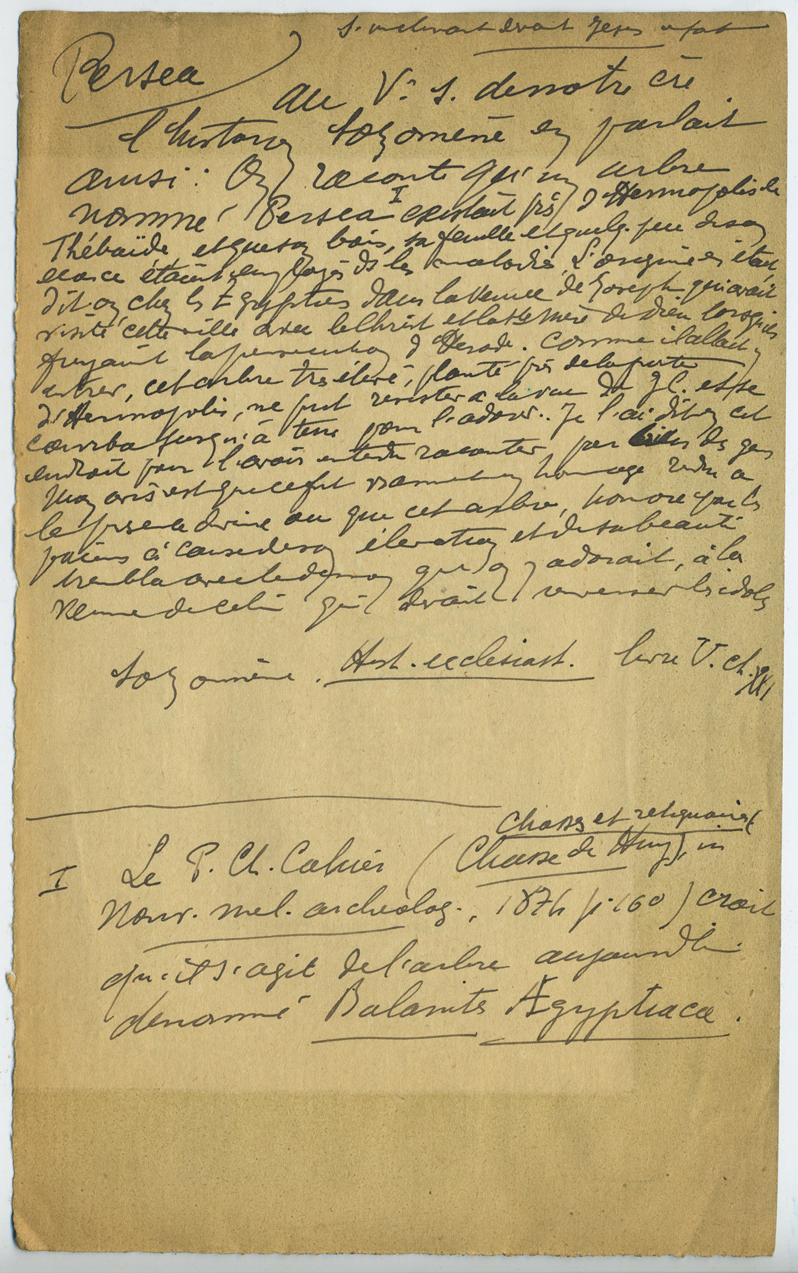 s'inclinant devant Jésus enfant
Persea
au Vè s. de notre ère
l'historien Sozomène en parlait
ainsi : On raconte qu'un arbre
nommé Persea I existait près d'Hermopolis de
Thébaïde, et que son bois, sa feuille et quelq. peu de son
écorce étaient employés ds les maladies. L'origine en était,
dit on chez les Egyptiens dans la venue de Joseph qui avait
visité cette ville avec le Christ et la Ste Mère de Dieu lorsqu'ils
fuyaient la persécution d'Hérode. Comme il allait y
entrer, cet arbre très élevé, planté près de la porte
d'Hermopolis, ne put résister à la vue de J.C. et se
courba jusqu'à terre pour l'adorer.. Je l'ai dit en cet
endroit pour l'avoir entendu raconter par des gens
Mon avis est que ce fut vraiment un hommage rendu à
la présence divine ou que cet arbre, honoré par les
païens à cause de son élévation et de sa beauté
trembla avec le démon qu'on y adorait, à la
venue de celui qui devait renverser les idoles
Sozomène. Hist. ecclésiast. livre V. ch. XXI
Chasses et reliquaires
I Le P. Ch. Cahier (Chasse de Huy), in
Nouv. mel. archéolog., 1874 p. 160) croit
qu'il s'agit de l'arbre aujourd'hui
dénommé Balanites Ægyptiaca.